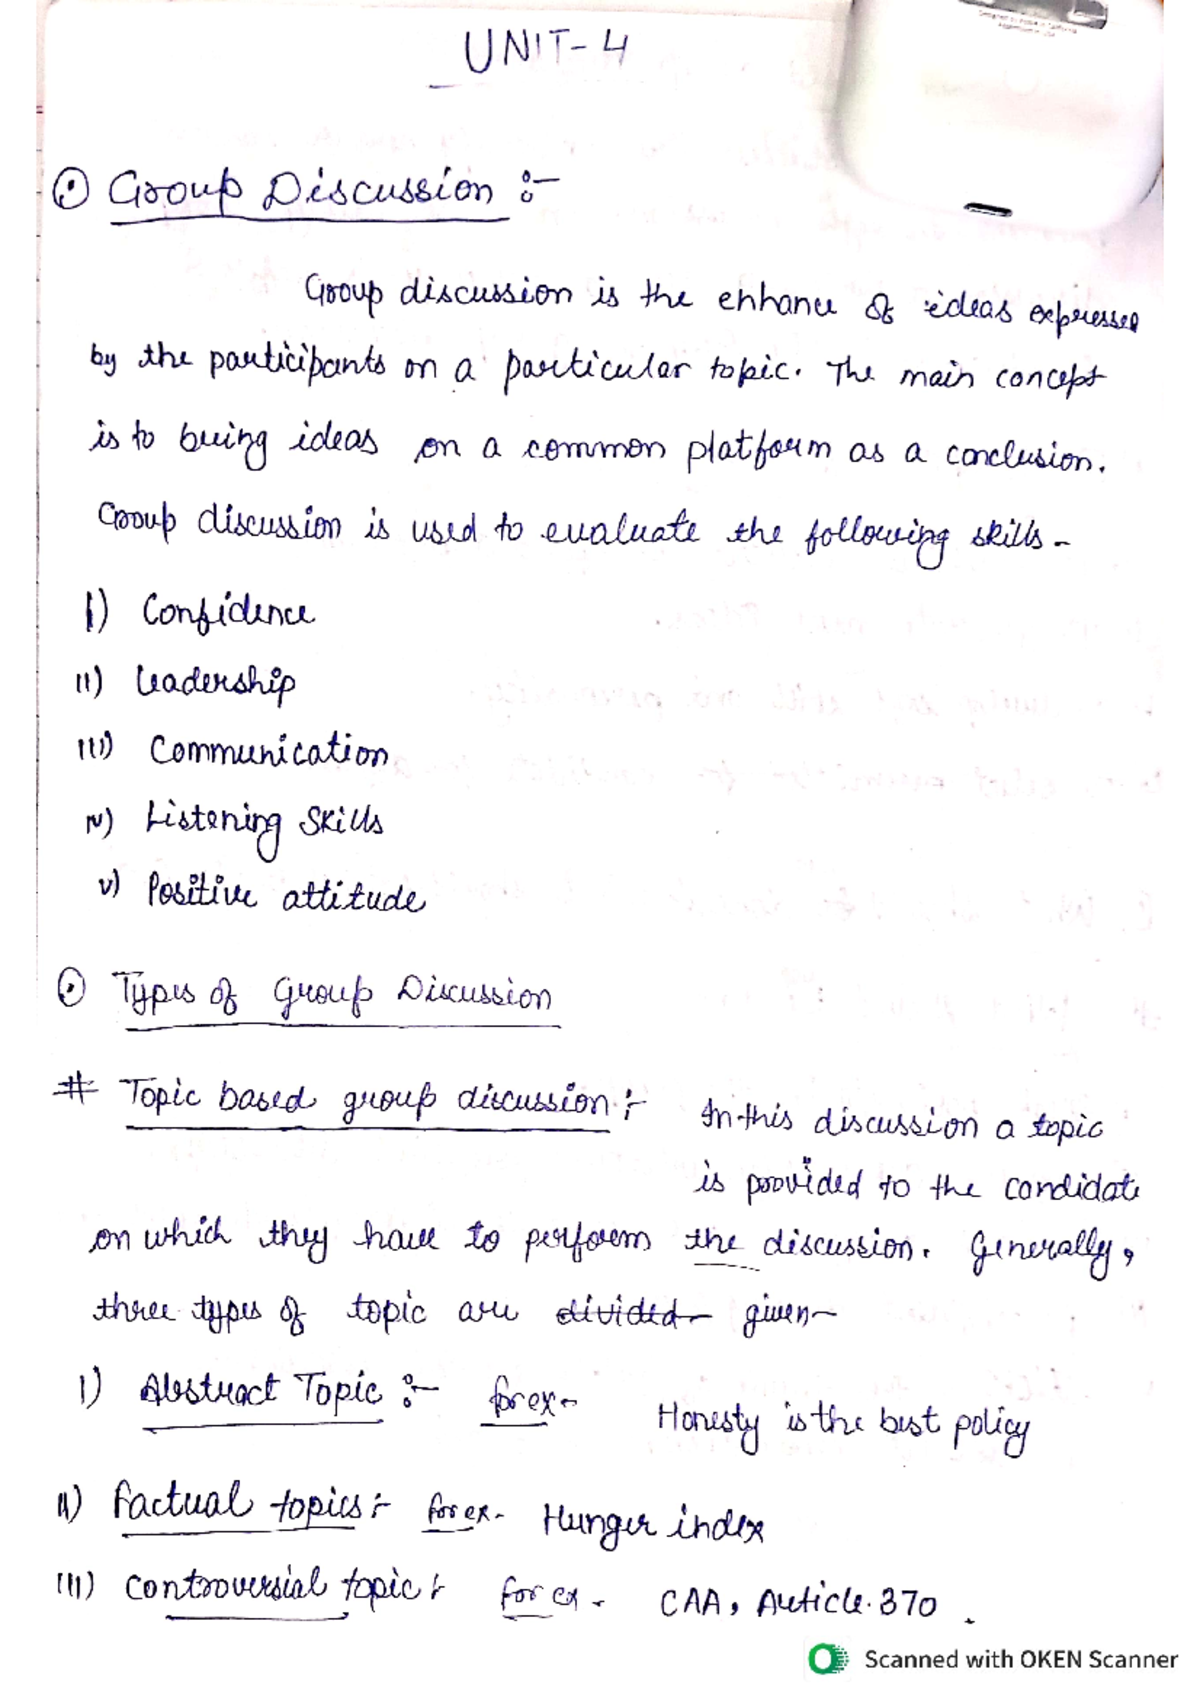 UNIT-4
Group Discussion :-
Group discussion is the enhance of ideas expressed
by the participants on a particular topic. The main concept
is to bring ideas on a common platform as a conclusion.
Group discussion is used to evaluate the following skills -
I) Confidence
II) Leadership
III) Communication
IV) Listening Skills
V) Positive attitude
Types of Group Discussion
# Topic based group discussion :- In this discussion a topic
is provided to the candidate
on which they have to perform the discussion. Generally,
three types of topic are divided given-
I) Abstract Topic :- for ex- Honesty is the best policy
II) factual topics :- for ex- Hunger index
III) controversial topic :- for ex - CAA, Article. 370 .
Scanned with OKEN Scanner